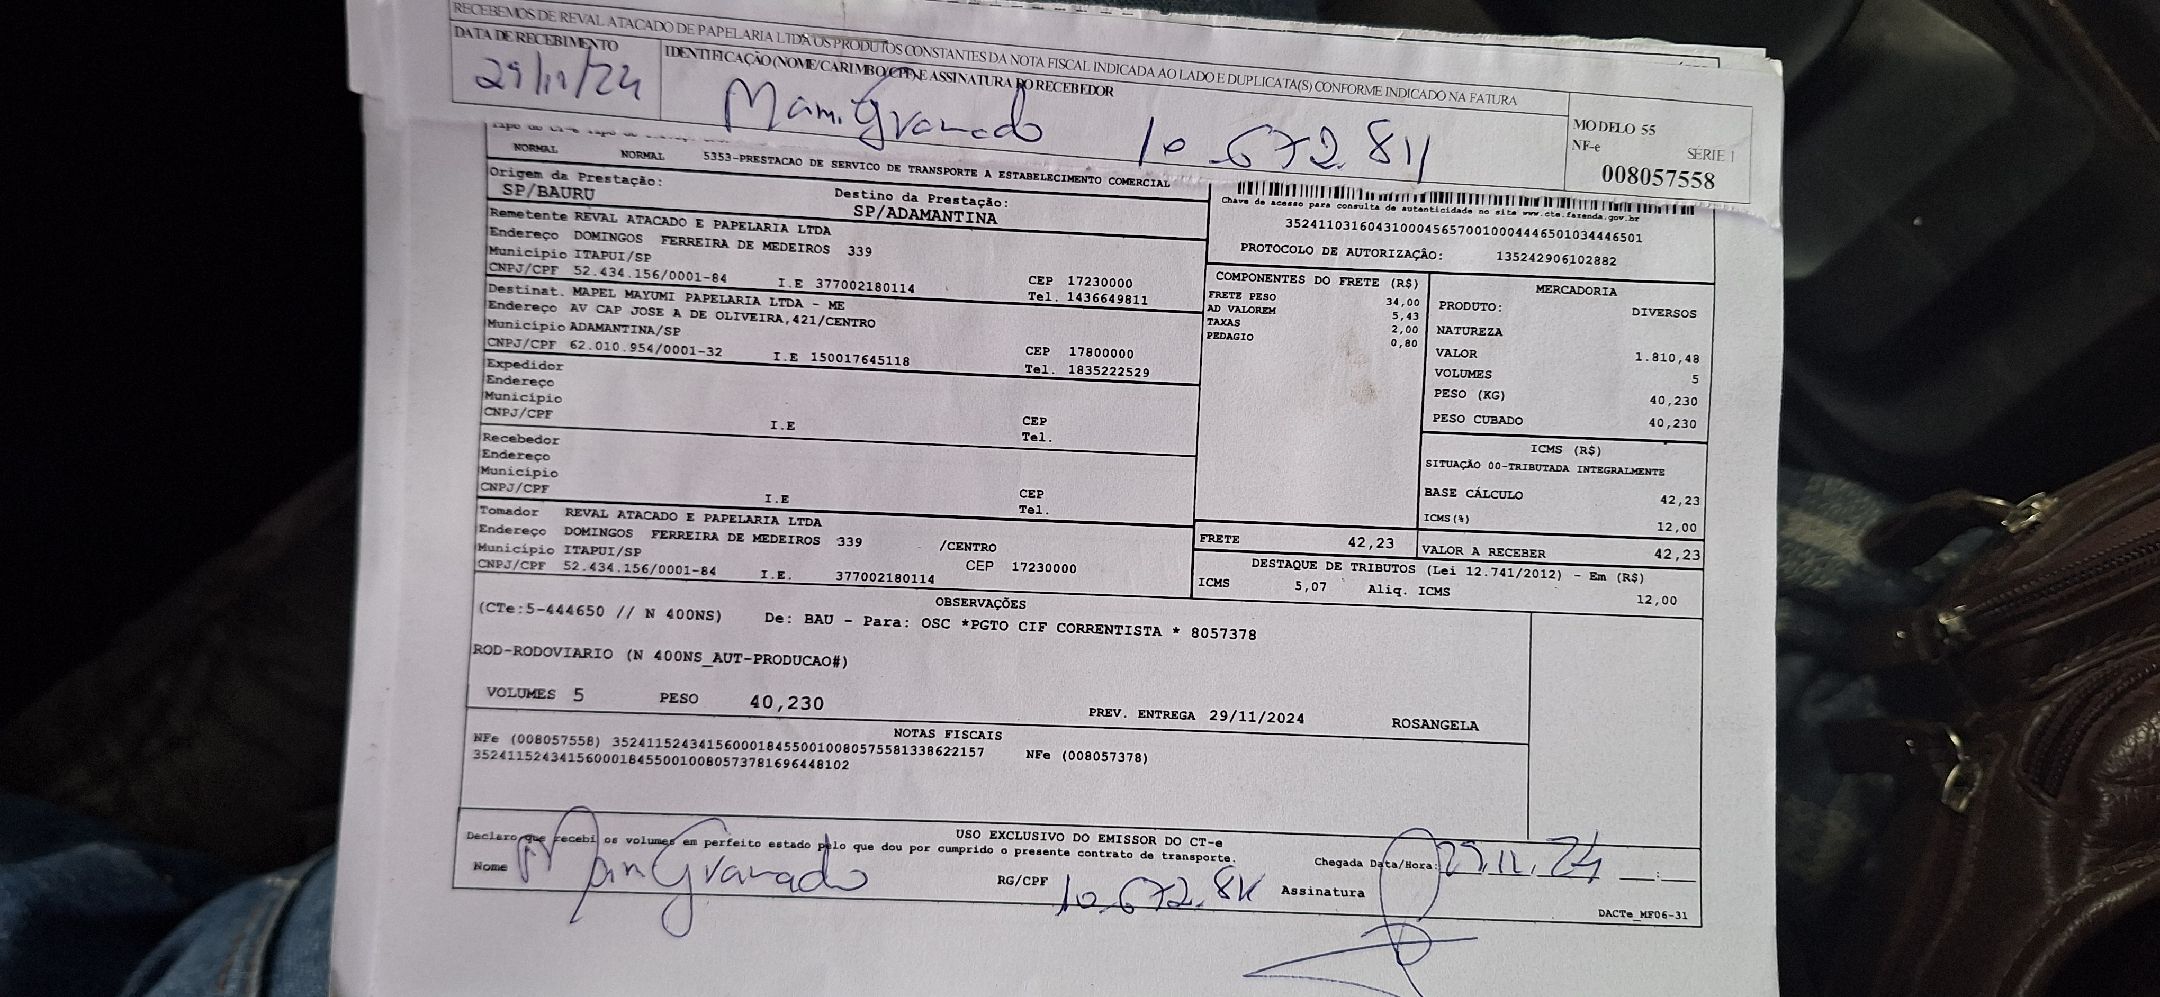 RECEBEMOS DE REVAL ATACADO DE PAPELARIA LTDA OS PRODUTOS CONSTANTES DA NOTA FISCAL INDICADA AO LADO E DUPLICATA(S) CONFORME INDICADO NA FATURA
DATA DE RECEBIMENTO
IDENTIFICAÇÃO (NOME/CARIMBO/CPF) E ASSINATURA DO RECEBEDOR
29/11/24
Granado 10.672.811
MODELO 55
NF-e SÉRIE 1
008057558
NORMAL NORMAL 5353-PRESTACAO DE SERVICO DE TRANSPORTE A ESTABELECIMENTO COMERCIAL
Origem da Prestação:
SP/BAURU
Destino da Prestação:
SP/ADAMANTINA
Chave de acesso para consulta de autenticidade no site www.cte.fazenda.gov.br
35241103160431000456570010004446501034446501
PROTOCOLO DE AUTORIZAÇÃO: 135242906102882
Remetente REVAL ATACADO E PAPELARIA LTDA
Endereço DOMINGOS FERREIRA DE MEDEIROS 339
Município ITAPUI/SP CEP 17230000
CNPJ/CPF 52.434.156/0001-84 I.E 377002180114 Tel. 1436649811
Destinat. MAPEL MAYUMI PAPELARIA LTDA - ME
Endereço AV CAP JOSE A DE OLIVEIRA,421/CENTRO
Município ADAMANTINA/SP CEP 17800000
CNPJ/CPF 62.010.954/0001-32 I.E 150017645118 Tel. 1835222529
Expedidor
Endereço
Município CEP
CNPJ/CPF I.E Tel.
Recebedor
Endereço
Município CEP
CNPJ/CPF I.E Tel.
Tomador REVAL ATACADO E PAPELARIA LTDA
Endereço DOMINGOS FERREIRA DE MEDEIROS 339 /CENTRO
Município ITAPUI/SP CEP 17230000
CNPJ/CPF 52.434.156/0001-84 I.E. 377002180114
COMPONENTES DO FRETE (R$)
FRETE PESO 34,00
AD VALOREM 5,43
TAXAS 2,00
PEDAGIO 0,80
MERCADORIA
PRODUTO: DIVERSOS
NATUREZA
VALOR 1.810,48
VOLUMES 5
PESO (KG) 40,230
PESO CUBADO 40,230
ICMS (R$)
SITUAÇÃO 00-TRIBUTADA INTEGRALMENTE
BASE CÁLCULO 42,23
ICMS(%) 12,00
FRETE 42,23
VALOR A RECEBER 42,23
DESTAQUE DE TRIBUTOS (Lei 12.741/2012) - Em (R$)
ICMS 5,07 Aliq. ICMS 12,00
OBSERVAÇÕES
(CTe:5-444650 // N 400NS) De: BAU - Para: OSC *PGTO CIF CORRENTISTA * 8057378
ROD-RODOVIARIO (N 400NS_AUT-PRODUCAO#)
VOLUMES 5 PESO 40,230 PREV. ENTREGA 29/11/2024 ROSANGELA
NOTAS FISCAIS
NFe (008057558) 35241152434156000184550010080575581338622157 NFe (008057378)
35241152434156000184550010080573781696448102
USO EXCLUSIVO DO EMISSOR DO CT-e
Declaro que recebi os volumes em perfeito estado pelo que dou por cumprido o presente contrato de transporte.
Nome Granado RG/CPF 10.672.811 Assinatura
Chegada Data/Hora: 29.11.24 __:__
DACTe_MF06-31